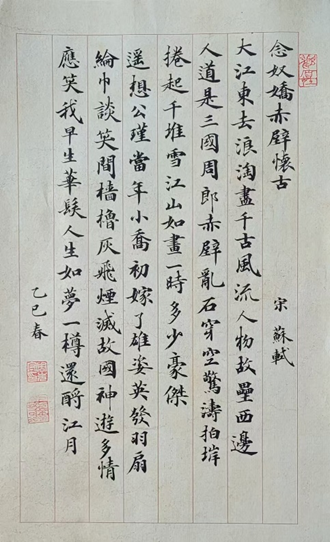 念奴嬌赤壁懷古　宋蘇軾
大江東去浪淘盡千古風流人物故壘西邊
人道是三國周郎赤壁亂石穿空驚濤拍岸
捲起千堆雪江山如畫一時多少豪傑
遥想公瑾當年小喬初嫁了雄姿英發羽扇
綸巾談笑間檣櫓灰飛煙滅故國神遊多情
應笑我早生華髮人生如夢一樽還酹江月
乙巳春